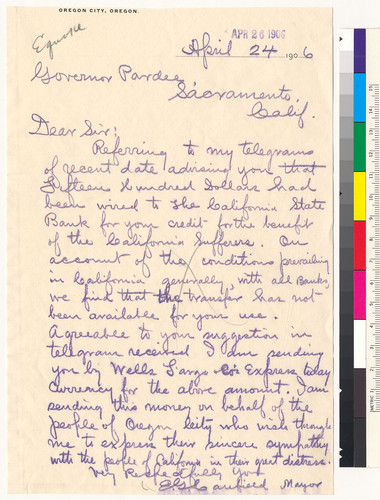 OREGON CITY, OREGON.
APR 26 1906
April 24 1906
Governor Pardee,
Sacramento,
Calif.
Dear Sir;
Referring to my telegrams
of recent date advising you that
Fifteen Hundred Dollars had
been wired to the California State
Bank for your credit for the benefit
of the California Sufferers. On
account of the conditions prevailing
in California generally, with all Banks,
we find that the transfer has not
been available for your use.
Agreeable to your suggestion in
telegram received I am sending
you by Wells Fargo Co's Express today
currency for the above amount. I am
sending this money on behalf of the
people of Oregon City who wish through
me to express their sincere sympathy
with the people of California in their great distress.
Very Respectfully Yours
Caufield Mayor